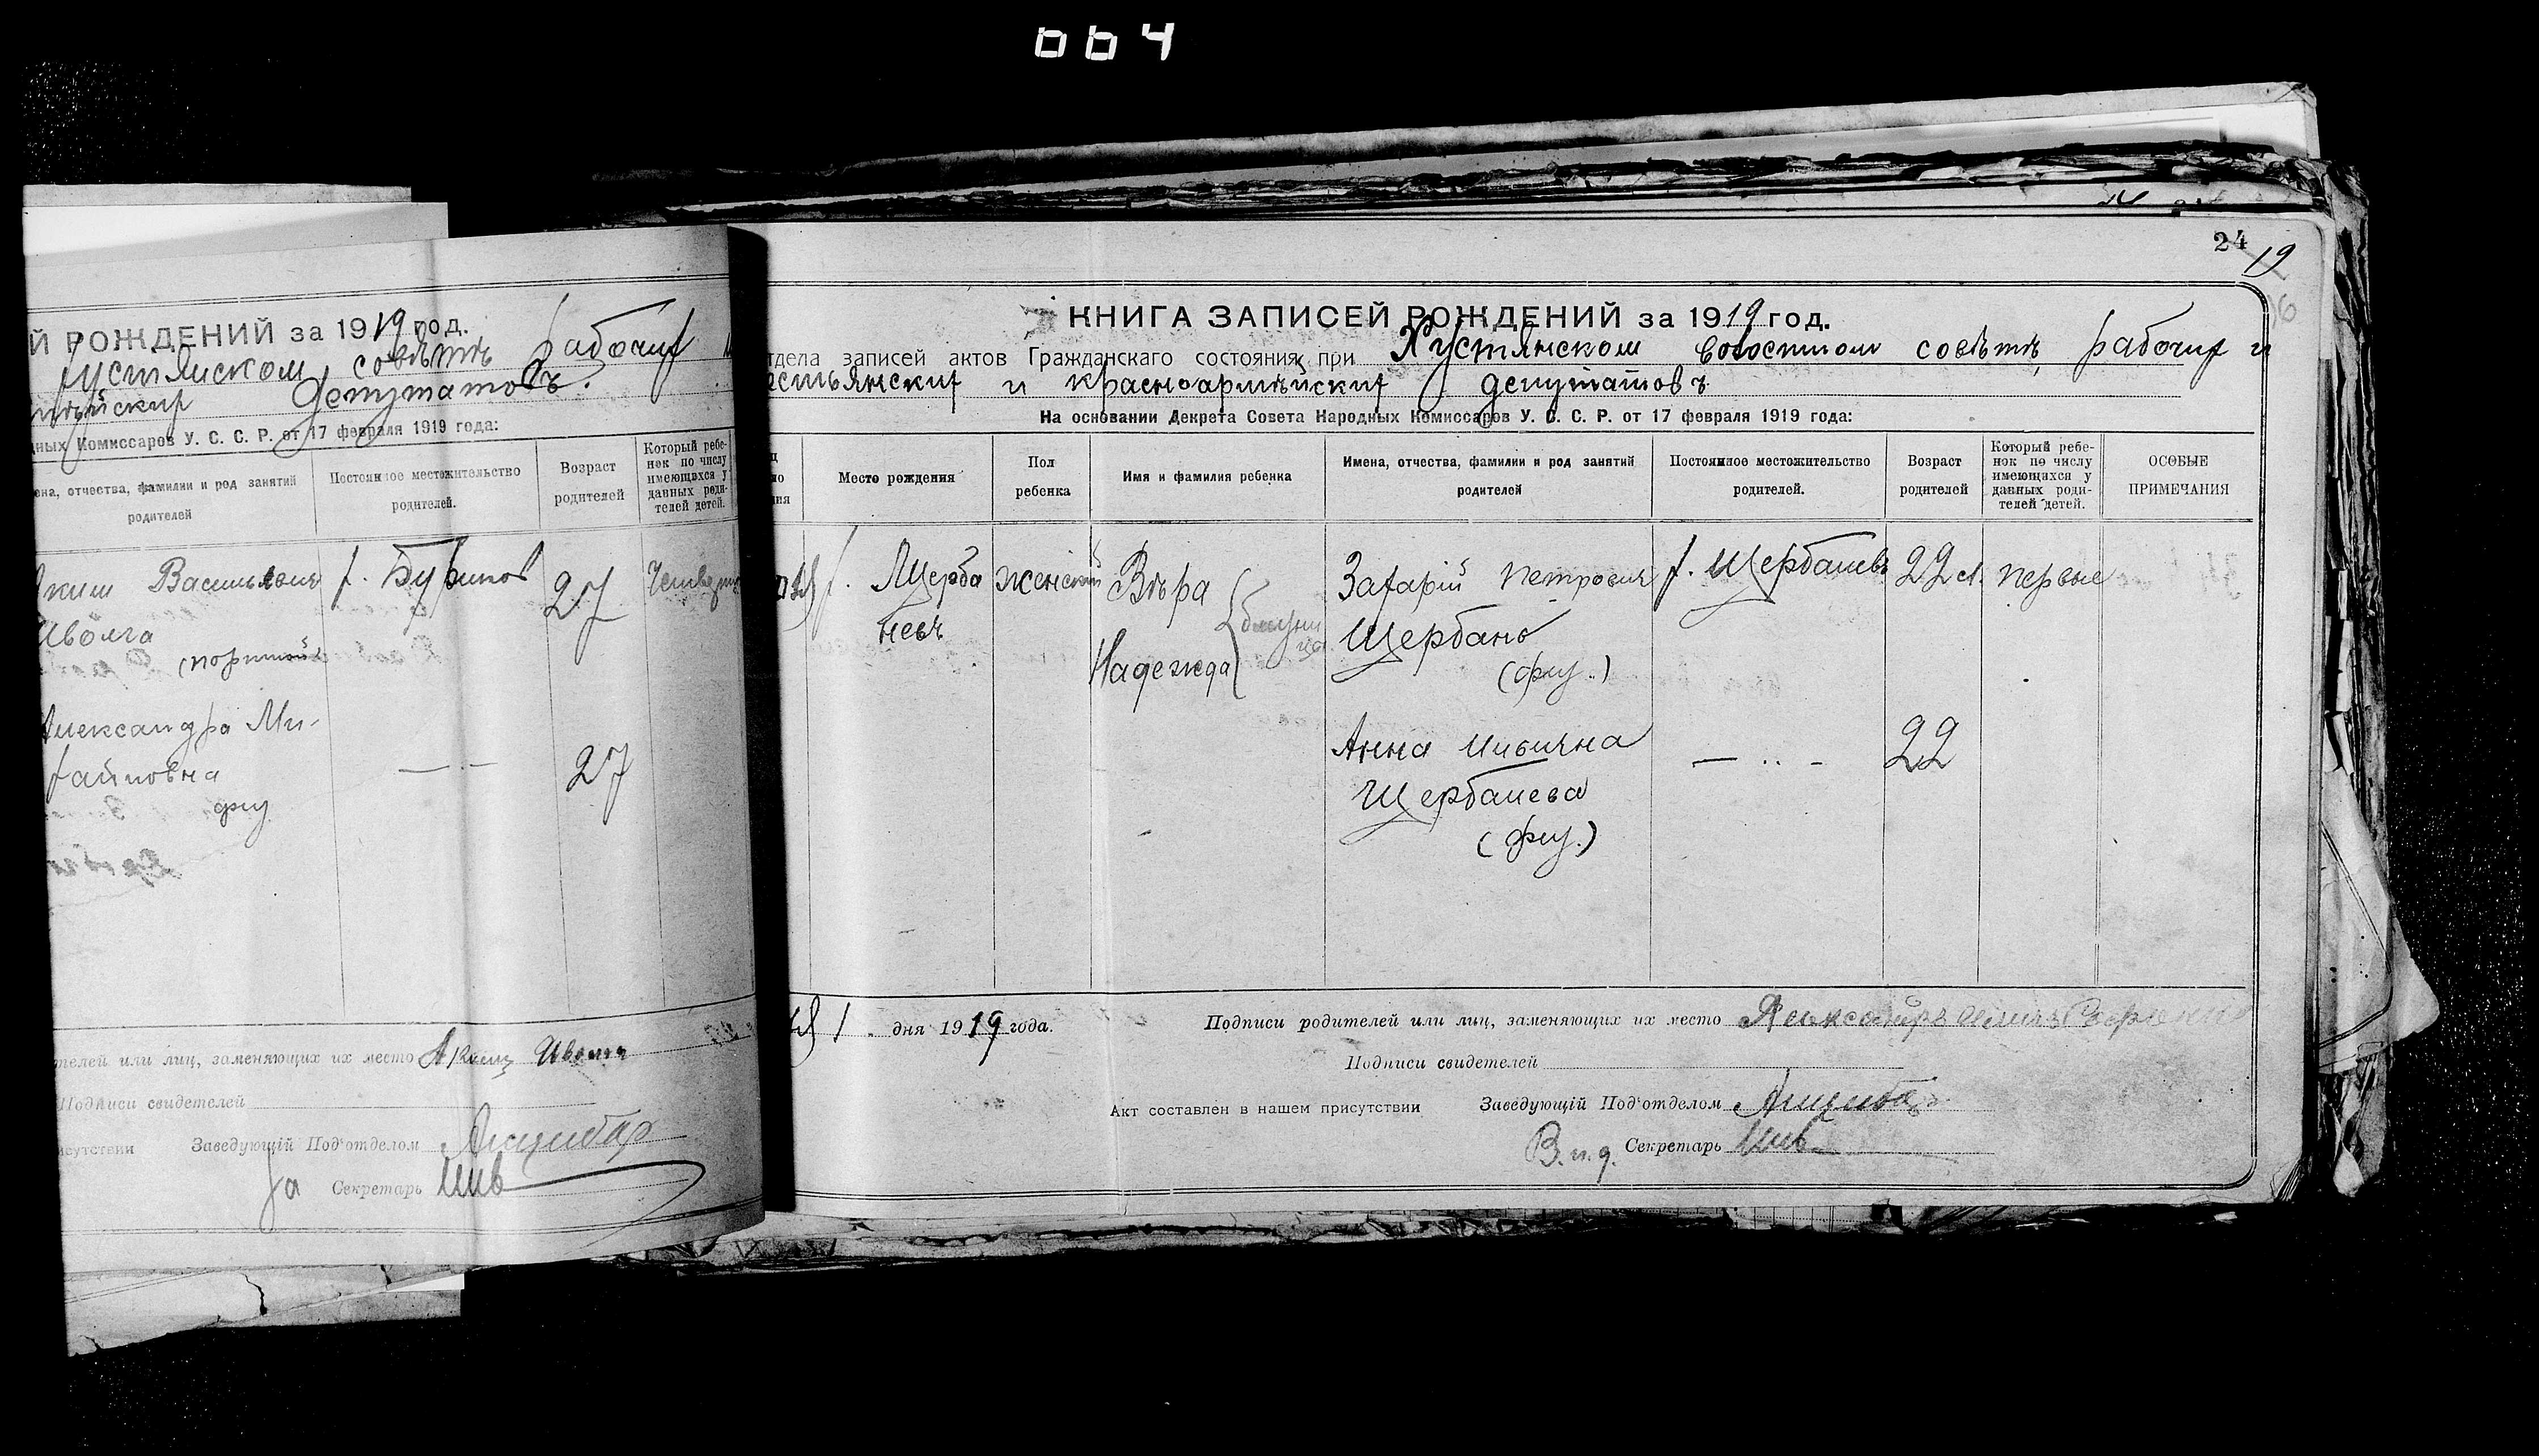 004
Й РОЖДЕНИЙ за 1919 год.
Хустянском совѣтѣ рабочих
депутатовъ.
дных Комиссаров У. С. С. Р. от 17 февраля 1919 года:
ена, отчества, фамилии и род занятий родителей
Постоянное местожительство родителей.
Возраст родителей
Который ребенок по числу имеющихся у данных родителей детей.
Васильевич
х.
27
Иволга
(портной)
Александра Ми-
хайловна
27
телей или лиц, заменяющих их место Аким Иволга
Подписи свидетелей
исутствии Заведующій Под'отделом
За Секретарь
24
19
16
КНИГА ЗАПИСЕЙ РОЖДЕНИЙ за 1919 год.
тдела записей актов Гражданскаго состояния при Хустянском волостном совѣтѣ рабочих и
естьянских и красноармѣйских депутатовъ
На основании Декрета Совета Народных Комиссаров У. С. С. Р. от 17 февраля 1919 года:
Место рождения
Пол ребенка
Имя и фамилия ребенка
Имена, отчества, фамилии и род занятий родителей
Постоянное местожительство родителей.
Возраст родителей
Который ребенок по числу имеющихся у данных родителей детей.
ОСОБЫЕ ПРИМЕЧАНИЯ
х. Щерба
невъ
женский
Вѣра
Надежда
близни
цы
Захарій Петрович
Щербань
х. Щербаневъ
22 л.
первые
Анна
Щербанева
22
1 дня 1919 года.
Подписи родителей или лиц, заменяющих их место
Подписи свидетелей
Акт составлен в нашем присутствии Заведующій Под'отделом
В.и.д. Секретарь